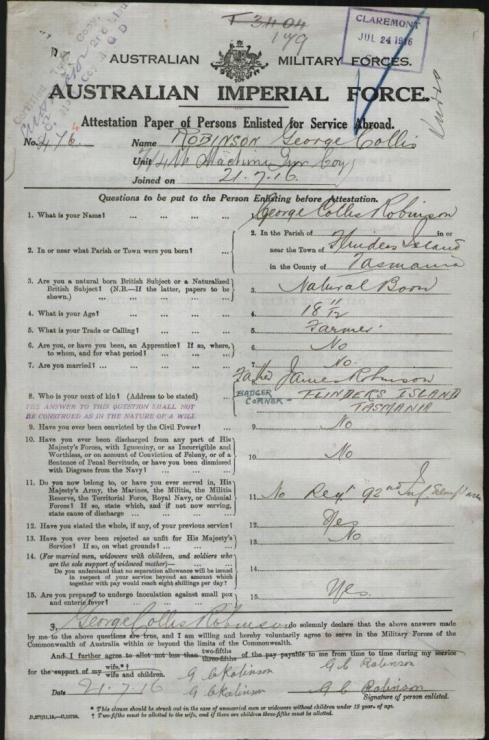 T 3404
179
CLAREMONT
JUL 24 1916
AUSTRALIAN MILITARY FORCES.
AUSTRALIAN IMPERIAL FORCE.
Attestation Paper of Persons Enlisted for Service Abroad.
No. 476 Name ROBINSON George Collis
Unit Machine Gun Coy
Joined on 21.7.16.
Questions to be put to the Person Enlisting before Attestation.
1. What is your Name? ... ... ... 1. George Collis Robinson
2. In or near what Parish or Town were you born? ... 2. In the Parish of in or
near the Town of Flinders Island
in the County of Tasmania
3. Are you a natural born British Subject or a Naturalized
British Subject? (N.B.—If the latter, papers to be
shown.) ... ... ... 3. Natural Born
4. What is your Age? ... ... ... 4. 18 11/12
5. What is your Trade or Calling? ... ... 5. Farmer
6. Are you, or have you been, an Apprentice? If so, where,
to whom, and for what period? ... ... 6. No
7. Are you married? ... ... ... 7. No.
8. Who is your next of kin? (Address to be stated) 8. Father James Robinson
BADGER CORNER FLINDERS ISLAND
TASMANIA
THE ANSWER TO THIS QUESTION SHALL NOT
BE CONSTRUED AS IN THE NATURE OF A WILL
9. Have you ever been convicted by the Civil Power? ... 9. No
10. Have you ever been discharged from any part of His
Majesty's Forces, with Ignominy, or as Incorrigible and
Worthless, or on account of Conviction of Felony, or of a
Sentence of Penal Servitude, or have you been dismissed
with Disgrace from the Navy? ... ... 10. No
11. Do you now belong to, or have you ever served in, His
Majesty's Army, the Marines, the Militia, the Militia
Reserve, the Territorial Force, Royal Navy, or Colonial
Forces? If so, state which, and if not now serving,
state cause of discharge ... ... 11. No Regt 92nd Inf
12. Have you stated the whole, if any, of your previous service? 12. Yes
13. Have you ever been rejected as unfit for His Majesty's
Service? If so, on what grounds? ... ... 13. No
14. (For married men, widowers with children, and soldiers who
are the sole support of widowed mother)—
Do you understand that no separation allowance will be issued
in respect of your service beyond an amount which
together with pay would reach eight shillings per day? 14.
15. Are you prepared to undergo inoculation against small pox
and enteric fever? ... ... ... 15. Yes.
I, George Collis Robinson do solemnly declare that the above answers
made by me to the above questions are true, and I am willing and hereby voluntarily agree to serve in the Military Forces of the
Commonwealth of Australia within or beyond the limits of the Commonwealth.
And I further agree to allot not less than two-fifths three-fifths of the pay payable to me from time to time during my service
for the support of my wife.*† wife and children. G C Robinson G C Robinson
Date 21.7.16 G C Robinson G C Robinson
Signature of person enlisted.
* This clause should be struck out in the case of unmarried men or widowers without children under 18 years of age.
† Two-fifths must be allotted to the wife, and if there are children three-fifths must be allotted.